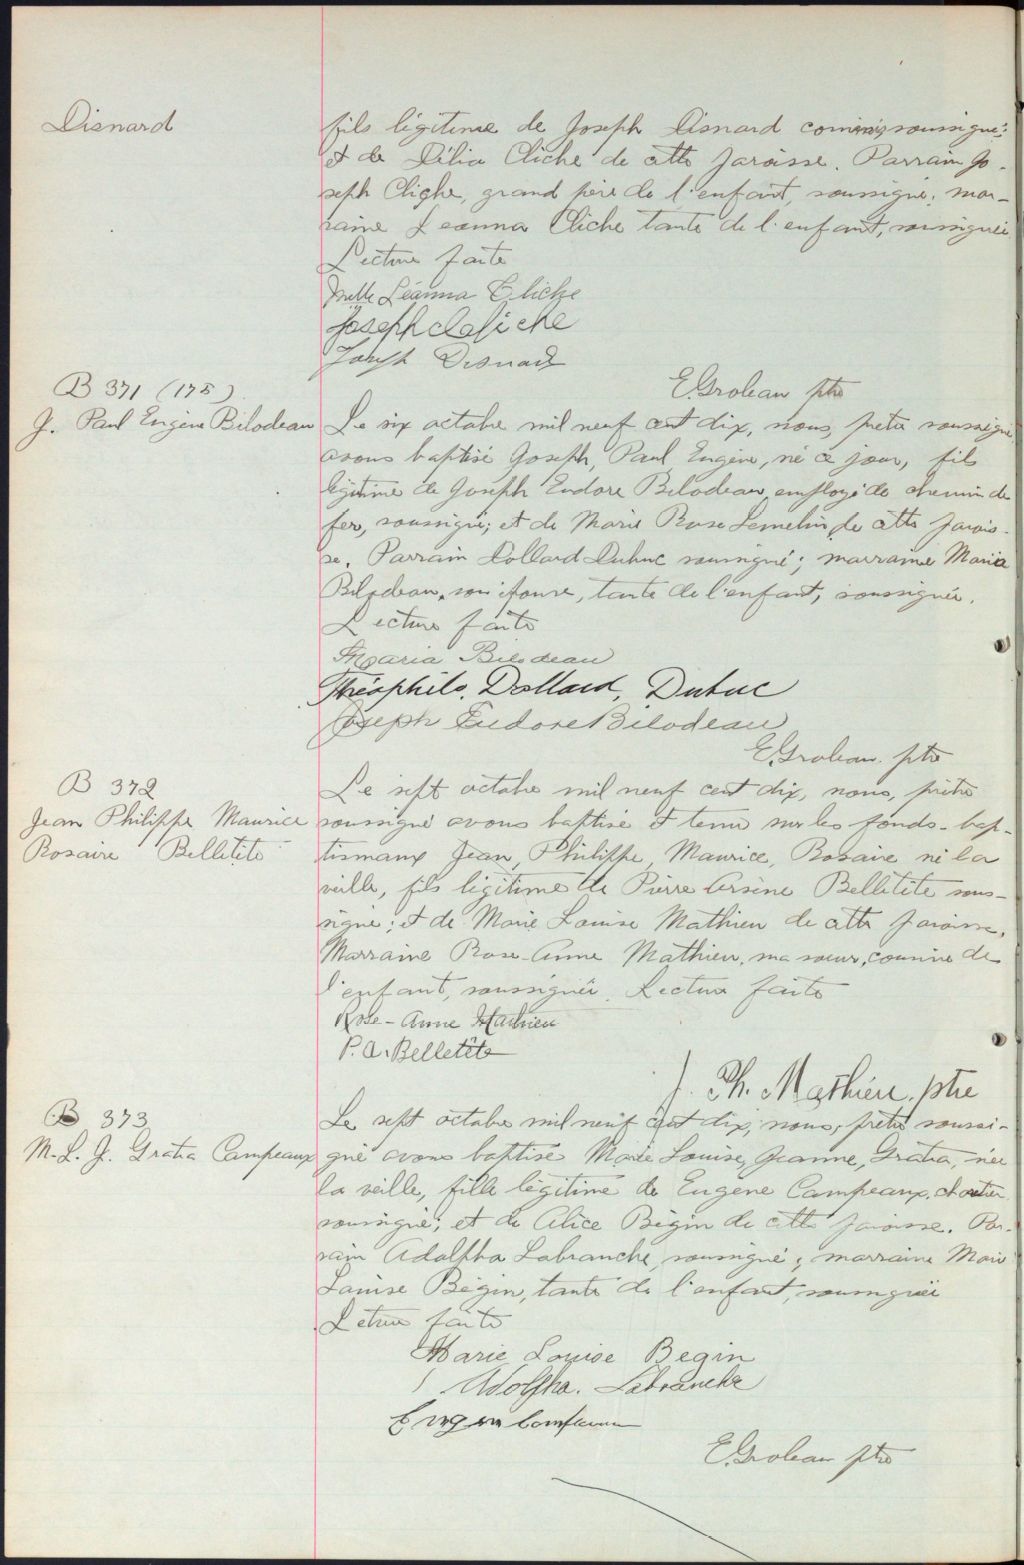 Disnard
fils légitime de Joseph Disnard commis, soussigné;
et de Délia Cliche de cette paroisse. Parrain Jo-
seph Cliche, grand père de l'enfant, soussigné; mar-
raine Léanna Cliche tante de l'enfant, soussignée
Lecture faite
Melle Léanna Cliche
Joseph Cliche
Joseph Disnard
E. Groleau ptre
B 371 (175)
J. Paul Eugène Bilodeau
Le six octobre mil neuf cent dix, nous, prêtre soussigné
avons baptisé Joseph, Paul Eugène, né ce jour, fils
légitime de Joseph Eudore Bilodeau, employé de chemin de
fer, soussigné; et de Marie Rose Lemelin de cette parois-
se. Parrain Dollard Dubuc soussigné; marraine Maria
Bilodeau, son épouse, tante de l'enfant, soussignée.
Lecture faite
Maria Bilodeau
Théophile. Dollard, Dubuc
Joseph Eudore Bilodeau
E. Groleau. ptre
B 372
Jean Philippe Maurice
Rosaire Belletête
Le sept octobre mil neuf cent dix, nous, prêtre
soussigné avons baptisé et tenu sur les fonds-bap-
tismaux Jean, Philippe, Maurice, Rosaire né la
veille, fils légitime de Pierre Arsène Belletête sous-
signé; et de Marie Louise Mathieu de cette paroisse.
Marraine Rose-Anne Mathieu, ma soeur, cousine de
l'enfant, soussignée. Lecture faite
Rose-Anne Mathieu
P. A. Belletête
J. Ph. Mathieu, ptre
B 373
M. L. J. Gratia Campeaux
Le sept octobre mil neuf cent dix, nous, prêtre soussi-
gné avons baptisé Marie Louise, Jeanne, Gratia, née
la veille, fille légitime de Eugène Campeaux,
soussigné; et de Alice Bégin de cette paroisse. Par-
rain Adolpha Labranche, soussigné; marraine Marie
Louise Bégin, tante de l'enfant, soussignée
Lecture faite
Marie Louise Begin
Adolpha. Labranche
E. Groleau ptre